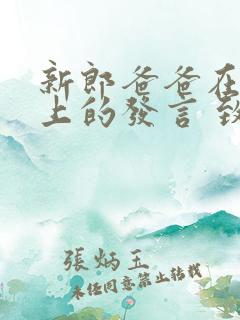 新郎爸爸在
上的發言 致
張炳玉
未任同意禁止轉載